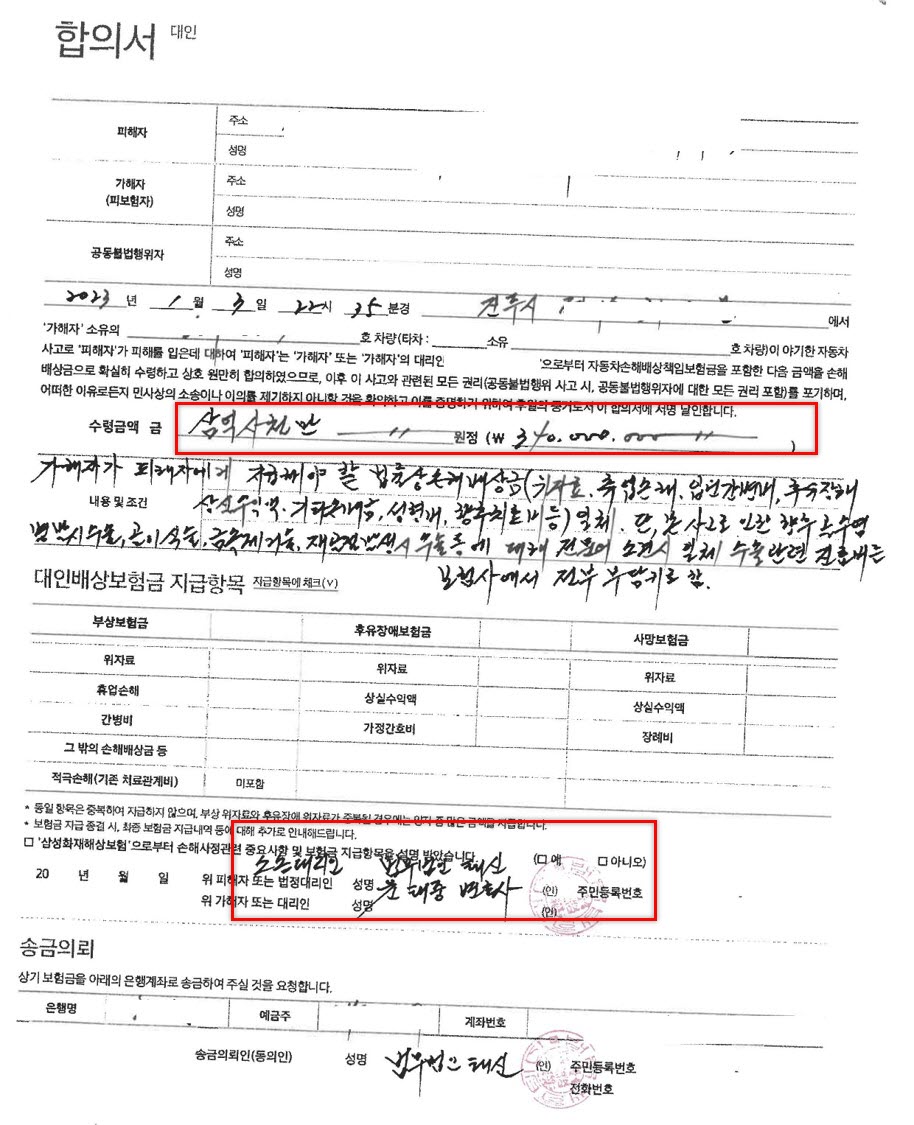 합의서 대인
피해자
주소
성명
가해자
(피보험자)
주소
성명
공동불법행위자
주소
성명
2023 년 1 월 3 일 22시 35 분경 전주시 에서
'가해자' 소유의 호 차량(타차 : 소유 호 차량)이 야기한 자동차
사고로 '피해자'가 피해를 입은데 대하여 '피해자'는 '가해자' 또는 '가해자'의 대리인 '으로부터 자동차손해배상책임보험금을 포함한 다음 금액을 손해
배상금으로 확실히 수령하고 상호 원만히 합의하였으므로, 이후 이 사고와 관련된 모든 권리(공동불법행위 사고 시, 공동불법행위자에 대한 모든 권리 포함)를 포기하며,
어떠한 이유로든지 민사상의 소송이나 이의를 제기하지 아니할 것을 확약하고 이를 증명하기 위하여 후일의 증거로서 이 합의서에 서명 날인합니다.
수령금액 금 삼억사천만 〃 원정 (₩ 340,000,000 〃 )
가해자가 피해자에게 지급해야 할 법률상손해배상금(위자료, 휴업손해, 입원간병비, 후유장해
내용 및 조건 상실수익액, 기타손해배상금, 성형비, 향후치료비등) 일체. 단, 본 사고로 인한 향후 골수염
발생시 수술, 골이식술, 금속제거술, 재골절발생시 수술등에 대해 전문의 소견시 일체 수술관련 진료비는
보험사에서 전부 부담키로 함.
대인배상보험금 지급항목 지급항목에 체크(∨)
부상보험금 후유장애보험금 사망보험금
위자료 위자료 위자료
휴업손해 상실수익액 상실수익액
간병비 가정간호비 장례비
그 밖의 손해배상금 등
적극손해(기존 치료관계비) 미포함
* 동일 항목은 중복하여 지급하지 않으며, 부상 위자료와 후유장애 위자료가 중복될 경우에는 양자 중 많은 금액을 지급합니다.
* 보험금 지급 종결 시, 최종 보험금 지급내역 등에 대해 추가로 안내해드립니다.
□ '삼성화재해상보험'으로부터 손해사정관련 중요사항 및 보험금 지급항목을 설명 받았습니다. (□ 예 □ 아니오)
소송대리인 법무법인 태신
20 년 월 일 위 피해자 또는 법정대리인 성명 윤태중 변호사 (인) 주민등록번호
위 가해자 또는 대리인 성명 (인)
송금의뢰
상기 보험금을 아래의 은행계좌로 송금하여 주실 것을 요청합니다.
은행명 예금주 계좌번호
송금의뢰인(동의인) 성명 법무법인 태신 (인) 주민등록번호
전화번호